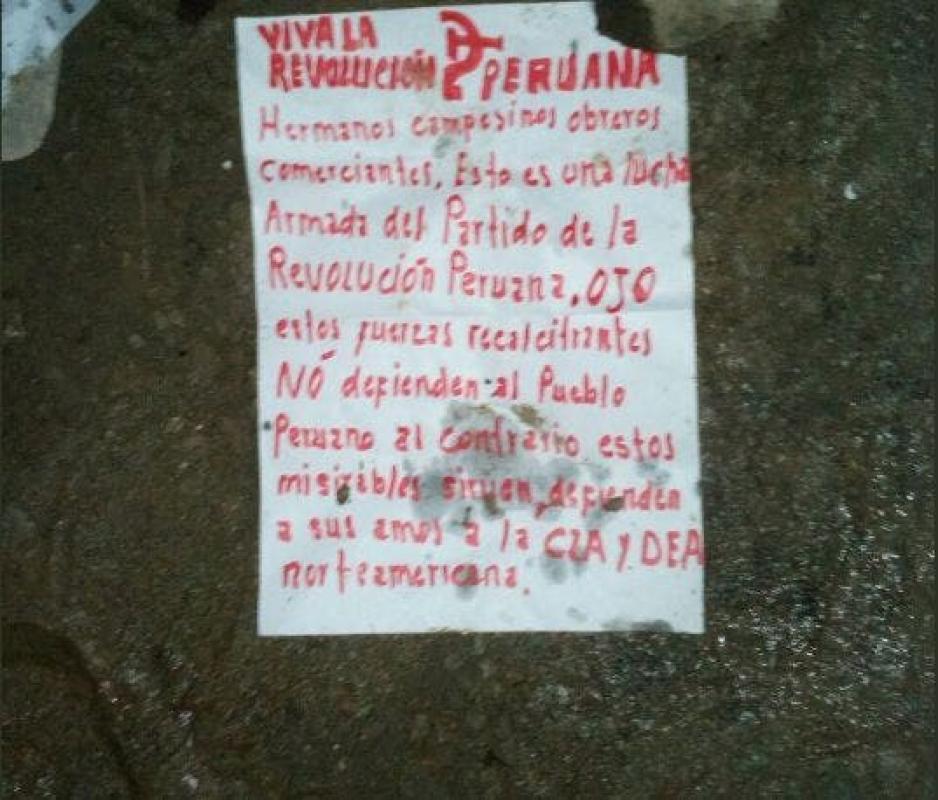 VIVA LA
REVOLUCIÓN PERUANA
Hermanos campesinos obreros
comerciantes. Esto es una lucha
Armada del Partido de la
Revolución Peruana, OJO
estos fuerzas recalcitrantes
NÓ defienden al Pueblo
Peruano al contrario estos
misirables sirven, defienden
a sus amos a la CIA y DEA
norteamericana.